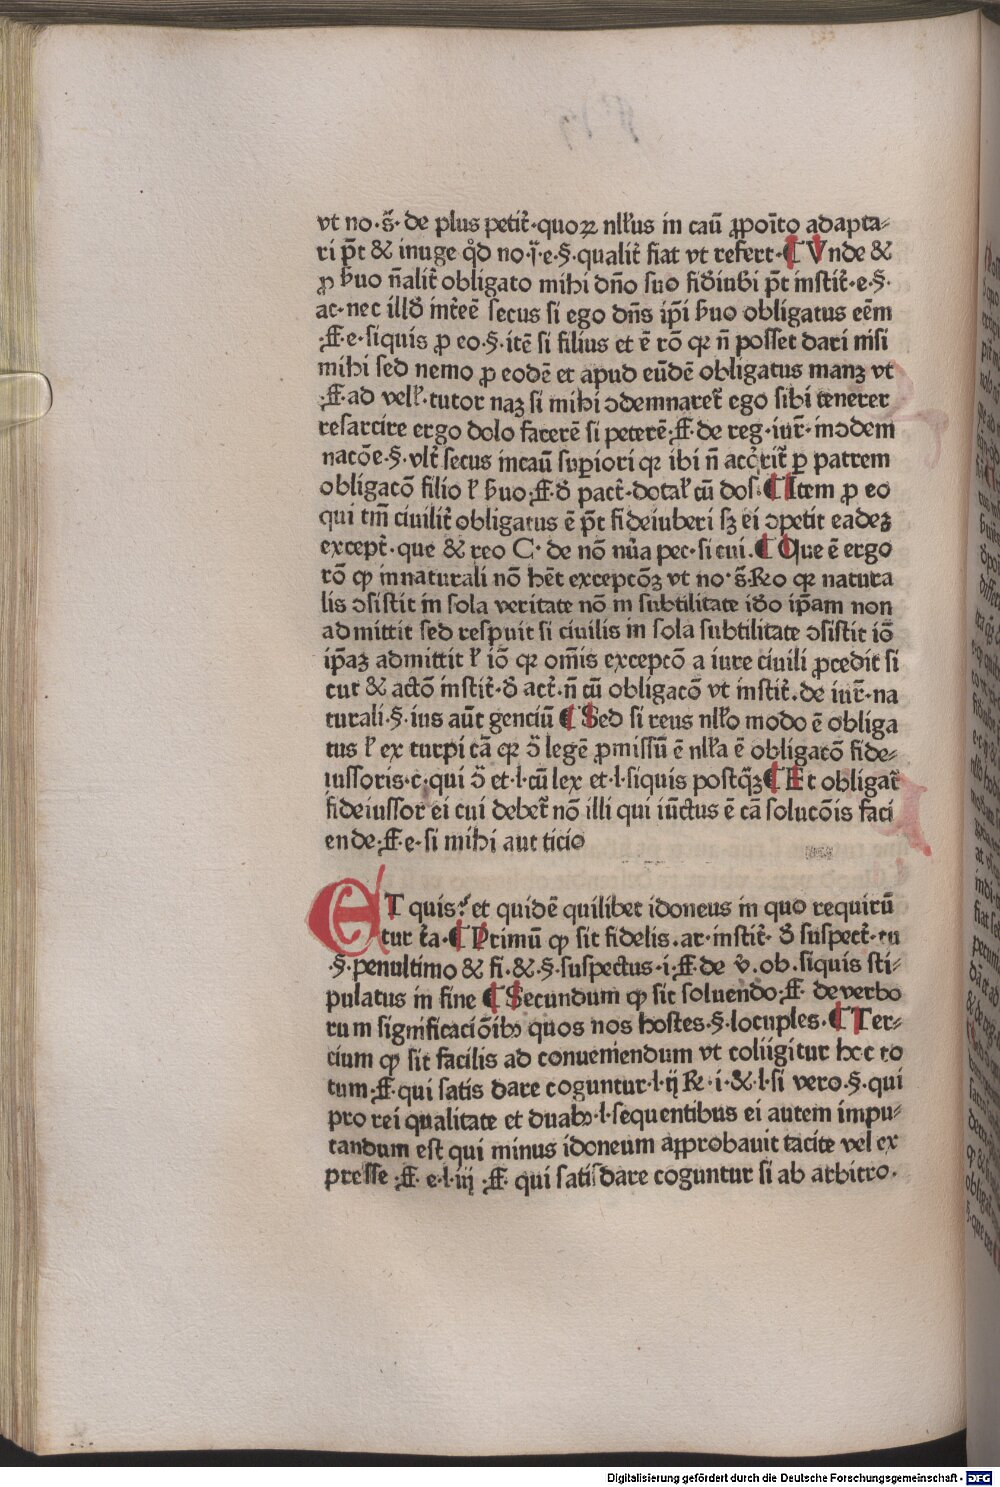 vt no·s̃· de plus petit̃·quoꝝ nll'us in cau᷑ ꝓpoĩto adapta-
ri p̃t & inuge qd̾ no·ĩ·e·§·qualit̃ fiat vt refert·¶ Vnde &
ꝓ ẜuo ñalit̃ obligato mihi dño suo fid̾iub̾i p̃t instit̃·e·§·
ac·nec illd̾ int̃eẽ secus si ego dñs ip̃i ẜuo obligatus eẽm
·ff·e·siquis ꝓ eo·§·itẽ si filius et ẽ rõ qꝛ ñ posset dari nisi
mihi sed nemo ꝓ eodẽ et apud eũdẽ obligatus manꝫ vt
·ff·ad vell'·tutor naꝫ si mihi ↄdemnaret̃ ego sibi tenerer
resarcire ergo dolo facerẽ si peterẽ·ff·de reg·iur̃·inↄdem
nacõe·§·vlt̃ secus incau᷑ sup̲iori qꝛ ibi ñ accq̃rit̃ ꝑ patrem
obligacõ filio ł ẜuo·ff·d̾ pact̃·dotał cũ dos·¶ Item ꝓ eo
qui tm̃ ciuilit̃ obligatus ẽ p̃t fideiuberi sꝫ ei ↄpetit eadeꝫ
except̃·que & reo C· de nõ nũa pec·si cui·¶ Que ẽ ergo
rõ ꝙ innaturali nõ hẽt excepcõꝫ vt no·s̃·Ro qꝛ natura
lis ↄsistit in sola veritate nõ in subtilitate id̾o ip̃am non
admittit sed respuit si ciuilis in sola subtilitate ↄsistit iõ
ip̃aꝫ admittit ł iõ qꝛ om̃is excepcõ a iure ciuili ꝓcedit si
cut & actõ instit̃·d̾ act̃·ñ cũ obligacõ vt instit̃·de iur̃·na
turali·§·ius aũt genciũ ¶ Sed si reus nll'o modo ẽ obliga
tus ł ex turpi cã qꝛ ↄ̃ legẽ ꝓmissũ ẽ nll'a ẽ obligacõ fide-
iussoris·c·qui ↄ̃ et·l·cũ lex et·l·siquis postq̃ꝫ¶ Et obligat̃
fideiussor ei cui debet̃ nõ illi qui iũctus ẽ cã solucõis faci
ende·ff·e·si mihi aut ticio
ET quis? et quidẽ quilibet idoneus in quo requirũ
tur t̃a·¶ Primũ ꝙ sit fidelis·ar·instit̃· d̾ suspect̃·tu
·§·penultimo & fi·&·§·suspectus·i·ff·de v̾·ob·siquis sti-
pulatus in fine ¶ Secundum ꝙ sit soluendo·ff· de verbo
rum significaciõibꝫ quos nos hostes·§·locuples·¶ Ter-
cium ꝙ sit facilis ad conueniendum vt coliigitur hoc to
tum·ff·qui satis dare coguntur·l·ij R·i·&·l·si vero·§·qui
pro rei qualitate et duabꝫ·l·sequentibus ei autem impu-
tandum est qui minus idoneum aꝑprobauit tacite vel ex
presse ·ff· e·l·iij ·ff· qui satisdare coguntur si ab arbitro·
Digitalisierung gefördert durch die Deutsche Forschungsgemeinschaft · DFG